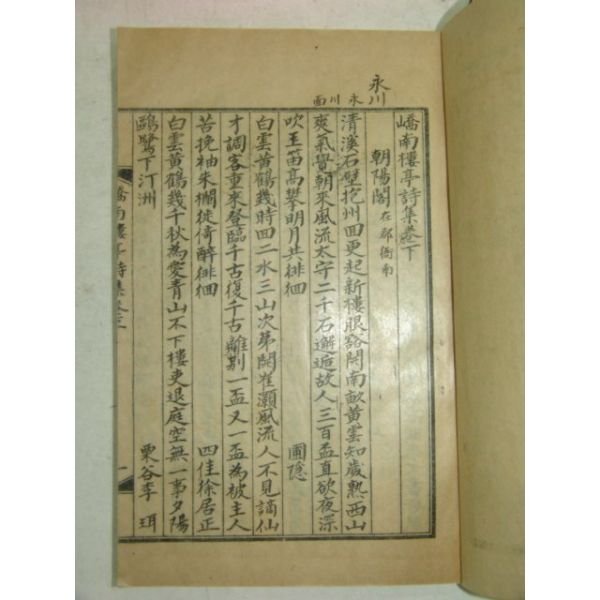 永川
永川面
嶠南樓亭詩集卷下
朝陽閣 在郡衙南
清溪石壁抱州回更起新樓眼豁開南畝黃雲知歲熟西山
爽氣覺朝來風流太守二千石邂逅故人三百盃直欲夜深
吹玉笛高攀明月共徘徊 圃隱
白雲黃鶴幾時回二水三山次第開崔灝風流人不見謫仙
才調客重來登臨千古復千古離別一盃又一盃為被主人
苦挽袖朱欄徙倚醉徘徊 四佳徐居正
白雲黃鶴幾千秋為愛青山不下樓吏退庭空無一事夕陽
鷗鷺下汀洲 栗谷李珥
嶠南樓亭詩集卷